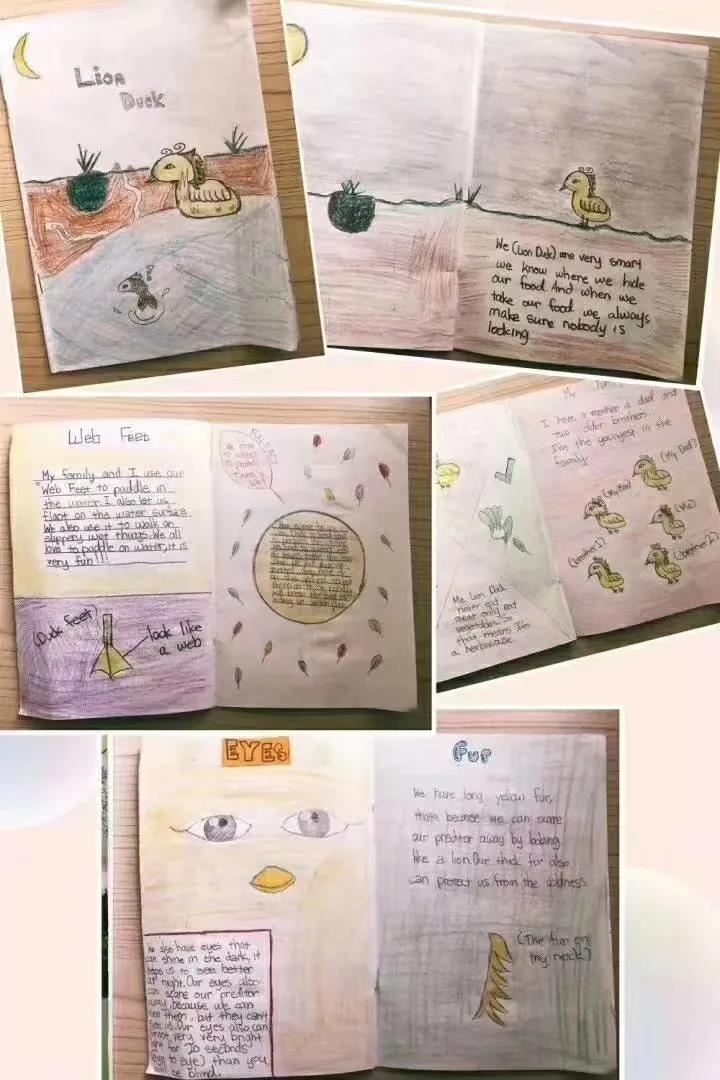 Lion
Duck
We (Lion Duck) are very smart
we know where we hide
our food. And when we
take our food we always
make sure nobody is
looking
Web Feet
My family and I use our
Web Feet to paddle in
the water. I also let us
float on the water surface.
We also use it to walk on
slippery wet things. We all
love to paddle on water, it is
very fun!!!
(Duck feet)
look like
a web
I have a mother, a dad and
two older brothers.
I'm the youngest in the
family.
(My Dad)
(My Mom)
(Me)
(brother1)
(brother2)
We Lion Duck
never eat
meat only eat
vegetables. So
that means I'm
a herbivouse.
EYES
We also have eyes that
can shine in the dark, it
helps us to see better
at night. Our eyes also
can scare our preditor
away, because we can
see them, but they can't
see us. Our eyes also can
shoot very very bright
light for 20 seconds
(eye to eye) than you
will be blind.
Fur
We have long yellow fur,
thats because we can scare
our preditor away by looking
like a lion. Our thick fur also
can protect us from the coldness.
(The fur on
my neck)